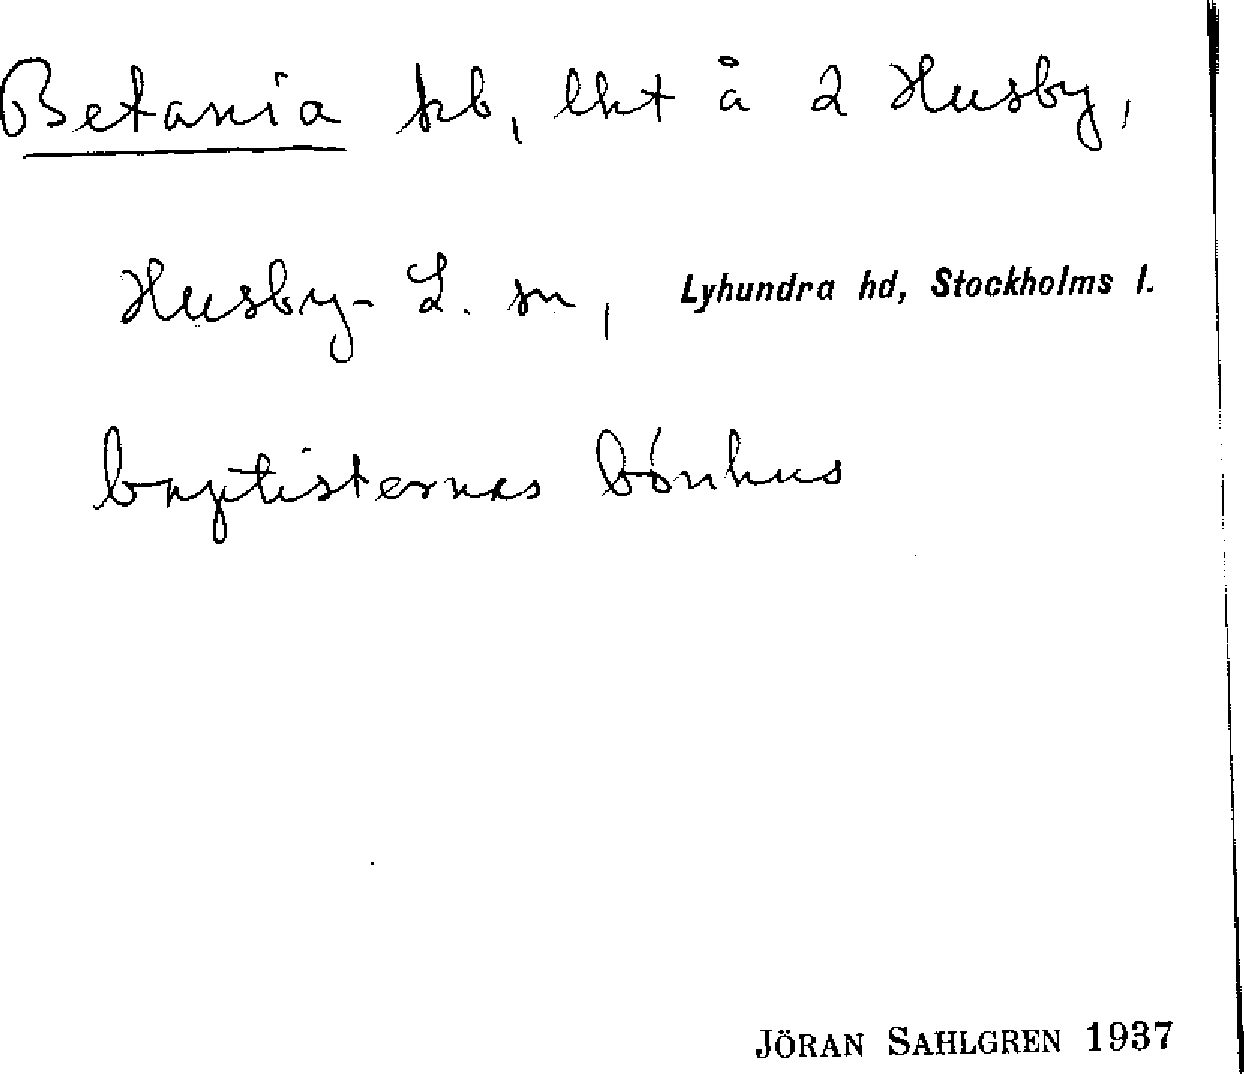 Betania kb, lht å 2 Husby,
Husby-L. sn, Lyhundra hd, Stockholms l.
baptisternas bönhus
JÖRAN SAHLGREN 1937